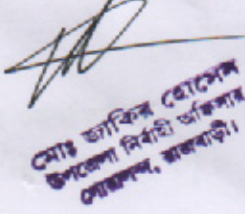 মোঃ জাকির হোসেন
উপজেলা নির্বাহী অফিসার
গোয়ালন্দ, রাজবাড়ী।